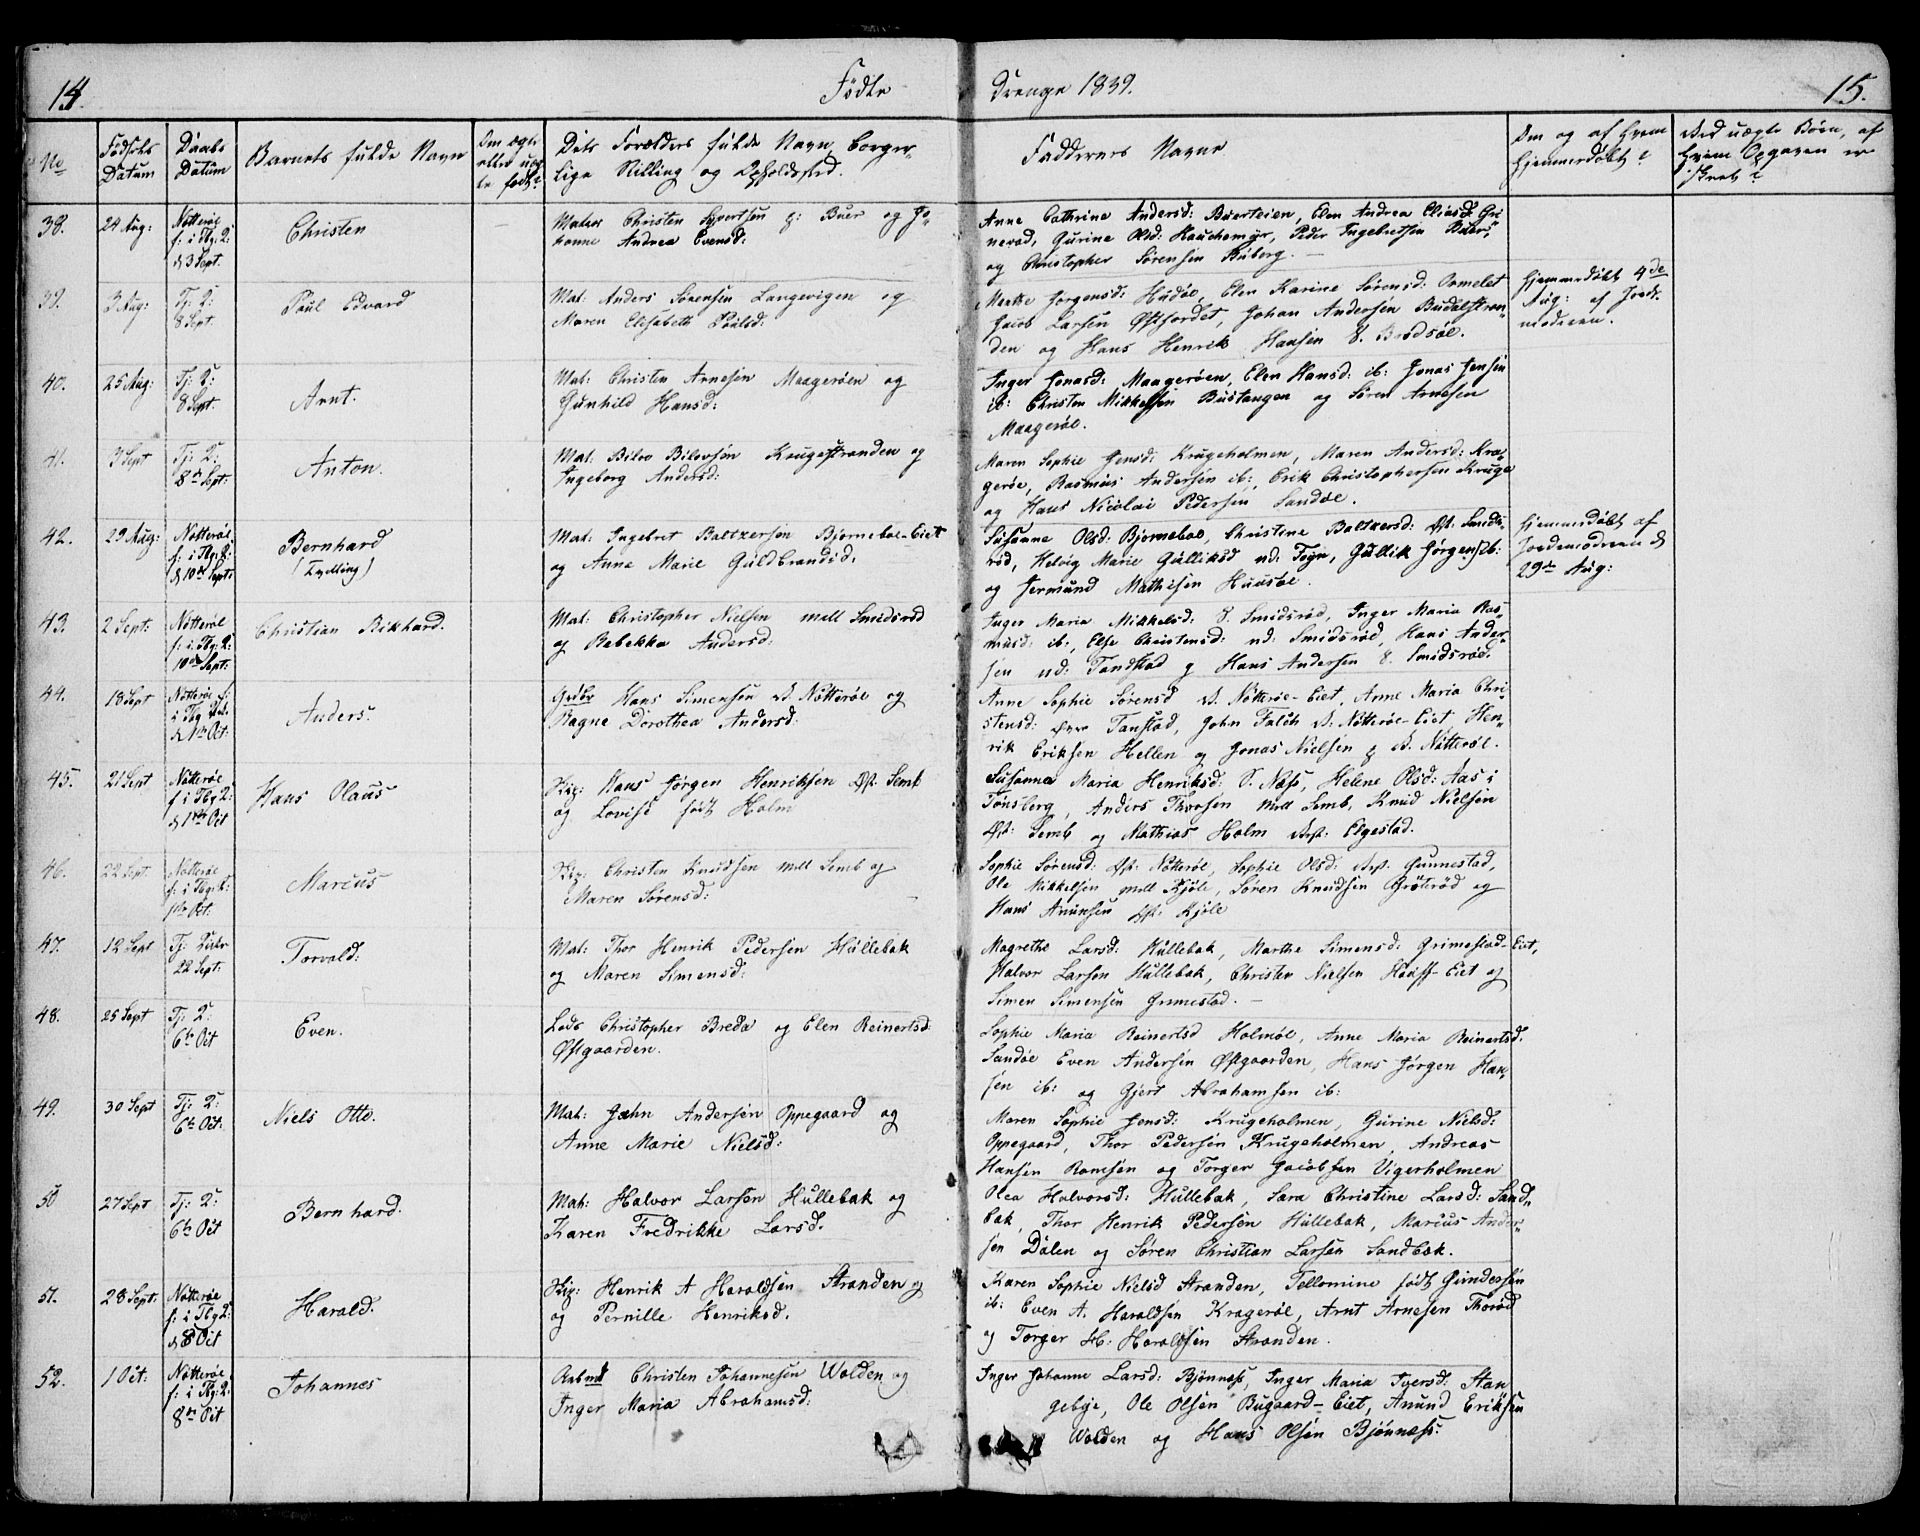 14.
Födte
Drenge 1839.
15.
No
Födsels Datum
Daabs Datum
Barnets fulde Navn
Om ægte eller uægte født?
Dets Forældres fulde Navn, borgerlige Stilling og Opholdssted.
Faddernes Navne
Om og af hvem hjemmedøbt?
Ved uægte Børn, af hvem Opgaven er skeet?
38.
24 Aug:
Nötteröe
f: i Tbg: 2:
d 3 Sept.
Christen
Christen Syvertsen g: Buer og Jo-
hanne Andrea Evensd:
Anne Cathrine Andersd: Buerteien, Elen Andrea Eliasd: Gri-
nerød, Gurine Olsd: Hauchemyr, Peder Ingebretsen Buer,
og Christopher Sørensen Buberg. —
39.
3 Aug:
Tj: 2:
8 Sept.
Poul Edvard
Mat: Anders Sørensen Langevigen og
Maren Elisabeth Poulsd:
Marthe Jørgensd: Hudøe, Elen Karine Sørensd:
Jacob Larsen Østfordet, Johan Andersen Budalstran-
den og Hans Henrik Hansen Brødsøe.
Hjemmedøbt 4de
Aug: af Jorde-
moderen.
40.
25 Aug:
Tj: 2:
8 Sept.
Arnt.
Mat: Christen Arnesen Maagerøen og
Gunhild Hansd:
Inger Jonasd: Maagerøen, Elen Hansd: ib: Jonas Jensen
ib: Christen Mikkelsen Bustangen og Søren Arnesen
Maagerøe.
41.
3 Sept
Tj: 2:
8de Sept:
Anton.
Mat: Krugestranden og
Ingeborg Andersd:
Maren Sophie Jensd: Krugeholmen, Maren Andersd: Kra-
gerøe, Rasmus Andersen ib:, Erik Christophersen Kruge
og Hans Nicolai Pedersen Sandøe.
42.
29 Aug:
Nötteröe
f: i Tbg: 2:
d 10de Sept:
Bernhard
(Tvilling)
Mat: Ingebret Baltzersen Bjørnebøe-Eiet
og Anne Marie Guldbrandsd.
Susanne Olsd: Bjørnebøe, Christine Baltzersd: Øst: Smids-
rød, Helvig Marie Gulliksd nd: Tegn, Gullik Jørgens ib:
og Jermund Mathisen Huusøe.
Hjemmedøbt af
Jordemoderen d
29de Aug:
43.
2 Sept:
Nötteröe
f: i Tbg: 2:
10de Sept:
Christian Rikhard.
Mat: Christopher Nielsen mell Smidsrød
og Rebekka Andersd:
Inger Maria Mikkelsd: Smidsrød, Inger Maria Ras-
musd: ib:, Else Christensd: nd: Smidsrød, Hans Ander-
sen nd: Tandstad g Hans Andersen Smidsrød.
44.
18 Sept
Nötteröe f:
i Tbg
d 1ste Oct:
Anders.
Gdbr Hans Simensen V. Nötteröe og
Ragne Dorothea Andersd:
Anne Sophie Sørensd V. Nötteröe-Eiet, Anne Maria Chri-
stensd: Tanstad, John Falch V: Nötteröe-Eiet Hen-
rik Eriksen Hellen og Jonas Nielsen g V. Nötteröe.
45.
21 Sept
Nötteröe
f i Tbg 2:
d 1ste Oct
Hans Olaus
Skip: Hans Jørgen Henriksen Øst: Semb
og Lovise født Holm
Susanna Maria Henriksd: S. Næss, Helene Olsd: Aas i
Tønsberg, Anders Thorsen mell Semb, Knud Nielsen
Øst: Semb og Mathias Holm Vest: Elgestad.
46.
22 Sept:
Nötteröe
f: i Tbg: 2:
1ste Oct.
Marcus
Skip: Christen Knudsen mell Semb og
Maren Sørensd:
Sophie Sørensd: Øst: Nötteröe, Sophie Olsd: Vest: Gunnestad,
Ole Mikkelsen mell Kjøle, Søren Knudsen Grøterød og
Hans Anunsen Øst: Kjøle
47.
12 Sept
Tj:
22 Sept:
Torvald:
Mat: Thor Henrik Pedersen Hullebak
og Maren Simensd:
Magrethe Larsd: Hullebak, Marthe Simensd: Grimestad-Eiet,
Halvor Larsen Hullebak, Christen Nielsen Hauff-Eiet og
Simen Simensen Grimestad. —
48.
25 Sept
Tj: 2:
6te Oct
Even.
Lods Christopher Breda og Elen Reinertsd:
Østgaarden.
Sophie Maria Reinertsd Holmøe, Anne Maria Reinertsd.
Sandøe Even Andersen Østgaarden, Hans Jørgen Han-
sen ib: og Gjert Abrahamsen ib:
49.
30 Sept
Tj: 2:
6te Oct:
Niels Otto.
Mat: Jæhn Andersen Oppegaard og
Anne Marie Nielsd:
Maren Sophie Jensd: Krugeholmen, Gurine Nielsd:
Oppegaard, Thor Pedersen Krugeholmen, Andreas
Hansen Ramsøn og Torger Jacobsen Vigerholmen
50
27 Sept
Tj: 2:
6te Oct
Bernhard.
Mat: Halvor Larsen Hullebak og
Karen Fredrikke Larsd.
Olea Halvorsd: Hullebak, Sara Christine Larsd: Sand-
bæk, Thor Henrik Pedersen Hullebak, Marcus Ander-
sen Dalen og Søren Christian Larsen Sandbæk.
51.
28 Sept:
Nötteröe
f: i Tbg 2:
d 8 Oct
Harald.
Skip: Henrik A Haraldsen Stranden og
og Pernille Henriksd.
Karen Sophie Nielsd Stranden, Tellomine født Gundersen
ib: Even A. Haraldsen Kragerøe, Arnt Arnesen Thorød
og Torger H: Haraldsen Stranden.
52.
1 Oct:
Nötteröe
f: i Tbg: 2:
8de Oct
Johannes
Arbmd Christen Johannesen Wolden og
Inger Maria Abrahamsd:
Inger Johanne Larsd: Bjønness, Inger Maria Iversd: Stan
gebye, Ole Olsen Bugaard-Eiet, Anund Eriksen
Wolden og Hans Olsen Bjønness.